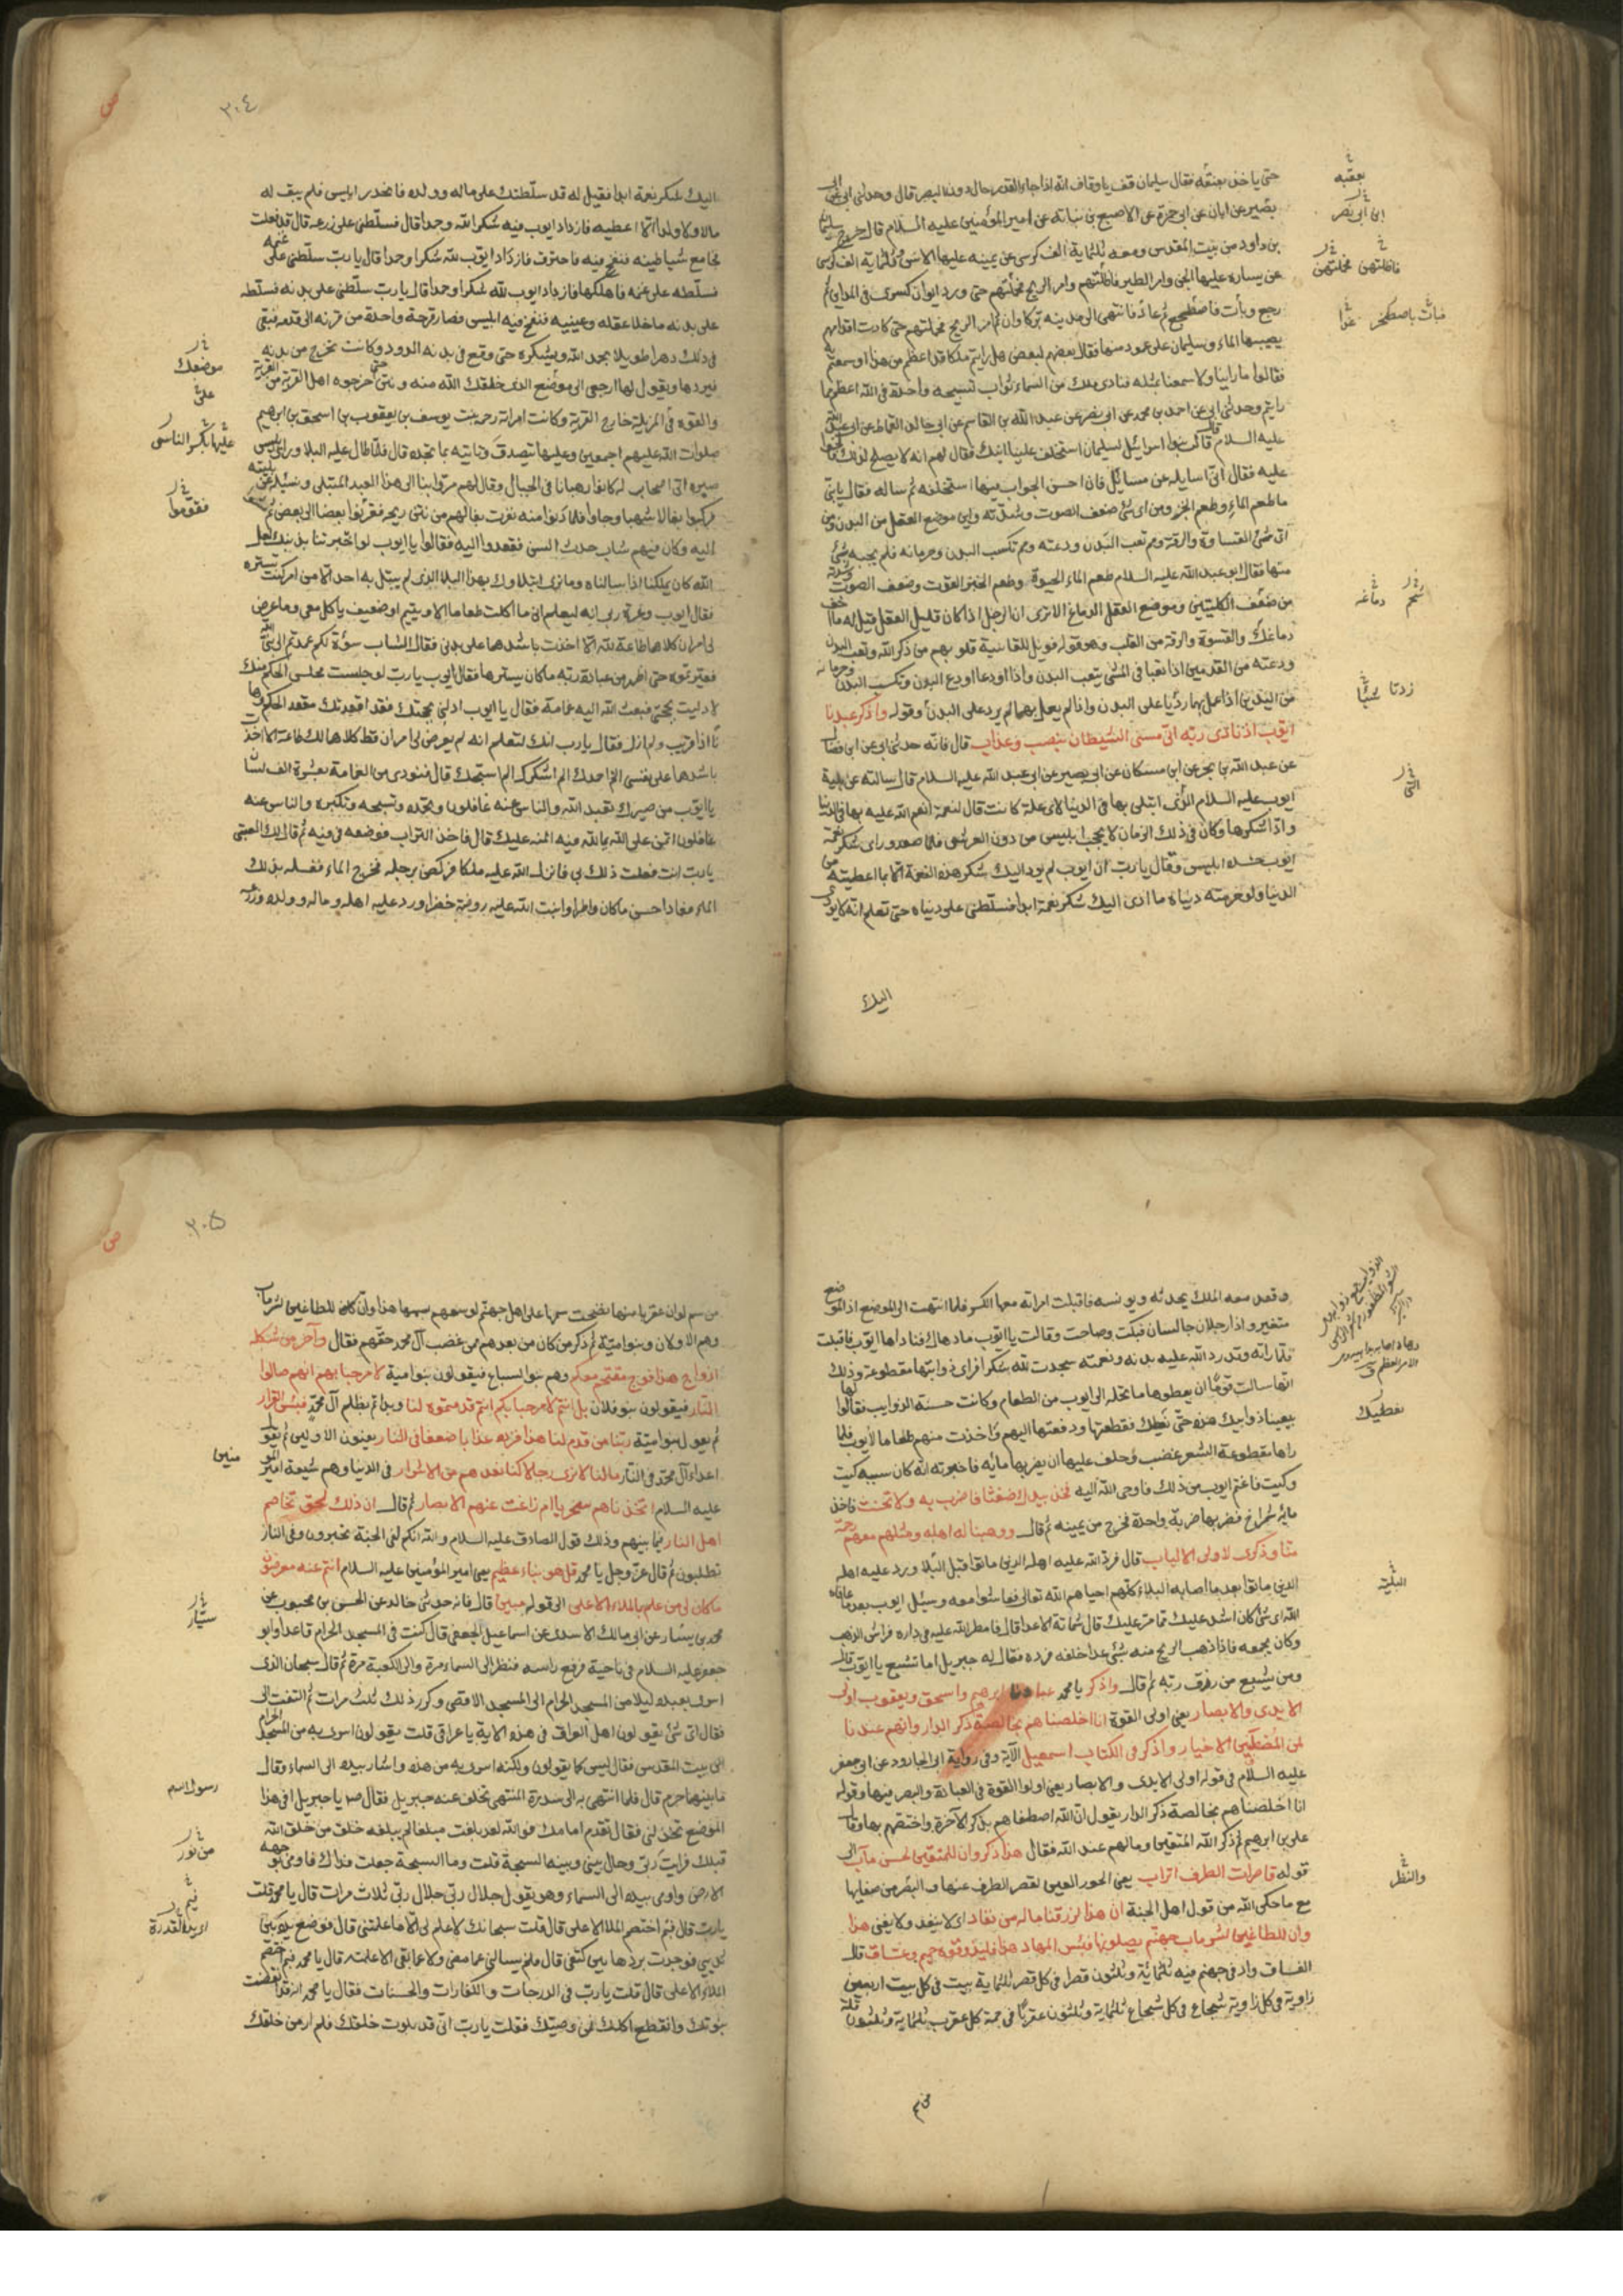 حتى ياخذ بعنقه فقال سليمان قف يا وقاف انه اذا جاء القدر حال دون البصر قال وحدثنى ابى عن ابى
بصير عن ابان عن ابى حمزة عن الاصبغ بن نباته عن امير المؤمنين عليه السلام قال خرج سليمان
بن داود من بيت المقدس ومعه ثلثماية الف كرسى عن يمينه عليها الانس وثلثماية الف كرسى
عن يساره عليها الجن وامر الطير فاظلتهم وامر الريح فحملتهم حتى ورد ايوان كسرى فى المداين ثم
رجع وبات فاضطجع ثم غدا فانتهى الى مدينه تركاوان ثم امر الريح فحملتهم حتى كادت اقدامهم
يصيبها الماء وسليمان على عمود منها فقال بعضهم لبعض هل رايتم ملكا قد اعظم من هذا او سمعتم به
فقالوا ما راينا ولا سمعنا بمثله فنادى ملك من السماء ثواب تسبيحه واحدة فى الله اعظم مما
رايتم وحدثنى ابى عن احمد بن محمد عن ابى نصر عن عبد الله بن القاسم عن ابى خالد القماط عن ابى عبد الله
عليه السلام قال قالت بنوا اسرائيل لسليمان استخلف علينا ابنك فقال لهم انه لا يصلح لذلك فالحوا
عليه فقال انى سايله عن مسايل فان احسن الجواب فيها استخلفه ثم ساله فقال يابنى
ما طعم الماء وطعم الخبز ومن اى شئ ضعف الصوت وشدته واين موضع العقل من البدن ومن
اى شئ القساوة والرقة ومم تعب البدن ودعته ومم تكسب البدن وحرمانه فلم يجبه بشئ
منها فقال ابو عبد الله عليه السلام طعم الماء الحيوة وطعم الخبز القوت وضعف الصوت وشدته
من ضعف الكليتين وموضع العقل الدماغ الا ترى ان الرجل اذا كان قليل العقل قيل له ما اخف
دماغك والقسوة والرقة من القلب وهو قوله فويل للقاسية قلوبهم من ذكر الله وتعب البدن
ودعته من القدمين اذا تعبا فى المشى يتعب البدن واذا اودعا اودع البدن وتكسب البدن وحرمانه
من اليدين اذا عمل بهما ردتا على البدن واذا لم يعمل بهما لم يرد على البدن وقوله واذكر عبدنا
ايوب اذ نادى ربه انى مسنى الشيطان بنصب وعذاب قال فانه حدثنى ابى عن ابن فضال
عن عبد الله بن بحر عن ابن مسكان عن ابى بصير عن ابى عبد الله عليه السلام قال سالته عن بلية
ايوب عليه السلام الذى ابتلى بها فى الدنيا لاى علة كانت قال لنعمة انعم الله عليه بها فى الدنيا
وادا شكرها وكان فى ذلك الزمان لا يحجب ابليس من دون العرش فلما صعد وراى شكر نعمة
ايوب حسده ابليس وقال يارب ان ايوب لم يود اليك شكر هذه النعمة الا بما اعطيته من
الدنيا ولو حرمته دنياه ما ادى اليك شكر نعمة ابدا فسلطنى على دنياه حتى تعلم انه لا يودى
اليك
بعقبه
ابن ابى نصر
فاظلتهن فحملتهن
فبات باصطخر غدا
شحم دماغه
زدتا شيئا
التى
٣٠٤
اليك شكر نعمة ابدا فقيل له قد سلطتك على ماله وولده فانحدر ابليس فلم يبق له
مالا ولا ولدا الا اعطبه فازداد ايوب فيه شكرا لله وحمدا قال فسلطنى على زرعه قال قد فعلت
فجا مع شياطينه فنفخ فيه فاحترق فازداد ايوب لله شكرا وحمدا قال يا رب سلطنى على غنمه
فسلطه على غنمه فاهلكها فازداد ايوب لله شكرا وحمدا قال يارب سلطنى على بدنه فسلطه
على بدنه ما خلا عقله وعينيه فنفخ فيه ابليس فصار قرحة واحدة من قرنه الى قدمه فبقى
فى ذلك دهرا طويلا يحمد الله ويشكره حتى وقع فى بدنه الدود وكانت تخرج من بدنه
فيردها ويقول لها ارجعى الى موضع الذى خلقك الله منه ونتن حتى خرجوه اهل القرية من القرية
والقوه فى المزبلة خارج القرية وكانت امراته رحمه بنت يوسف بن يعقوب بن اسحق بن ابرهيم
صلوات الله عليهم اجمعين وعليها تتصدق وتاتيه بما تجده قال فلما طال عليه البلا وراى ابليس
صبره اتى اصحاب له كانوا رهبانا فى الجبال وقال لهم مروا بنا الى هذا العبد المبتلى ونسئله عن بليته
فركبوا بغالا شهبا وجاوا فلما دنوا منه نفرت بغالهم من نتن ريحه فقرنوا بعضا الى بعض ثم مشوا
اليه وكان فيهم شاب حدث السن فقعدوا اليه فقالوا يا ايوب لو اخبرتنا بذنبك لعل
الله كان يملكنا اذا سالناه وما نرى ابتلاوك بهذا البلا الذى لم يبتل به احد الا من امر كنت تستره
فقال ايوب وعزة ربى انه ليعلم انى ما اكلت طعاما الا ويتيم او ضعيف ياكل معى وما عرض
لى امران كلاهما طاعة لله الا اخذت باشدهما على بدنى فقال الشاب سوءة لكم عمدتم الى نبى الله
فعيرتموه حتى اظهر من عبادة ربه ما كان يسترها فقال ايوب يا رب لو جلست مجلس الحكم منك
لادليت بحجتى فبعث الله اليه غمامة فقال يا ايوب ادلنى بحجتك فقد اقعدتك مقعد الحكم وها
نا اذا قريب ولم ازل فقال يا رب انك لتعلم انه لم يعرض لى امران قط كلاهما لك طاعة الا اخذت
باشدهما على نفسى الم احمدك الم اشكرك الم اسبحك قال فنودى من الغمامة بعشرة الف لسان
يا ايوب من صيرك تعبد الله والناس عنه غافلون وتحمده وتسبحه وتكبره والناس عنه
غافلون اتمن على الله بما لله فيه المنه عليك قال فاخذ التراب فوضعه فى فيه ثم قال لك العتبى
يارب انت فعلت ذلك بى فانزل الله عليه ملكا فركض برجله فخرج الماء فغسله بذلك
الماء فعاد احسن ما كان واطرا وانبت الله عليه روضة خضرا ورد عليه اهله وماله وولده وزرعه
موضعك
عليها بكر الناسى
فقوموا
وقعد معه الملك يحدثه ويونسه فاقبلت امراته معها الكسر فلما انتهت الى الموضع اذ الموضع
متغير واذا رجلان جالسان فبكت وصاحت وقالت يا ايوب ما دهاك فناداها ايوب فاقبلت
فلما راته وقد رد الله عليه بدنه ونعمته سجدت لله شكرا فراى ذوابتها مقطوعة وذلك
انها سالت قوما ان يعطوها ما تحمله الى ايوب من الطعام وكانت حسنة الذوايب فقالوا لها
بيعينا ذوابيك هذه حتى نعطيك فقطعتها ودفعتها اليهم واخذت منهم طعاما لايوب فلما
راها مقطوعة الشعر غضب وحلف عليها ان يضربها مايه فاخبرته انه كان سببه كيت
وكيت فاغتم ايوب من ذلك فاوحى الله اليه فخذ بيدك ضغثا فاضرب به ولا تحنث فاخذ
مايه شمراخ فضربها ضربة واحدة فخرج من يمينه ثم قال ووهبنا له اهله ومثلهم معهم رحمة
منا وذكرى لاولى الالباب قال فرد الله عليه اهله الذين ماتوا قبل البلا ورد عليه اهله
الذين ماتوا بعد ما اصابه البلاء كلهم احياهم الله تعالى فعاشوا معه وسئل ايوب بعد ما عافاه
الله اى شئ كان اشد عليك مما مر عليك قال شماتة الاعدا قال فامطر الله عليه فى داره فراش الذهب
وكان يجمعه فاذا ذهب الريح منه بشئ عدا خلفه فرده فقال له جبريل اما تشبع يا ايوب قال
ومن يشبع من رزق ربه ثم قال واذكر يا محمد عبادنا ابرهيم واسحق ويعقوب اولى
الايدى والابصار يعنى اولى القوة انا اخلصناهم بخالصة ذكر الدار وانهم عندنا
لمن المصطفين الاخيار واذكر فى الكتاب اسمعيل الآية وفى رواية ابى الجارود عن ابى جعفر
عليه السلام فى قوله اولى الايدى والابصار يعنى اولوا القوة فى العبادة والبصر فيها وقوله
انا اخلصناهم بخالصة ذكر الدار يقول ان الله اصطفاهم بذكر الآخرة واختصهم بها وقال
على بن ابرهيم ثم ذكر الله المتقين ومالهم عند الله فقال هذا ذكر وان للمتقين لحسن مآب الى
قوله قاصرات الطرف اتراب يعنى الحور العين لقصر الطرف عنها والبصر من صفايها
مع ما حكى الله من قول اهل الجنة ان هذا لرزقنا ماله من نفاد اى لا ينفد ولا يفنى هذا
وان للطاغين لشر ماب جهنم يصلونها فبئس المهاد هذا فليذوقوه حميم وغساق قال
الغساق واد فى جهنم فيه ثلثمائة وثلثون قصرا فى كل قصر ثلثماية بيت فى كل بيت اربعين
زاوية فى كل زاوية شجاع فى كل شجاع ثلثماية وثلثون عقربا فى حمة كل عقرب ثلثماية وثلثون قلة
من سم
نعطيك
البلية
والنظر
٣٠٥
من سم لو ان عقربا منها نضحت سمها على اهل جهنم لوسعهم سمها هذا وان كان للطاغين لشر ماب
وهم الاولان وبنو امية ثم ذكر من كان من بعدهم ممن غصب آل محمد حقهم فقال وآخر من شكله
ازواج هذا فوج مقتحم معكم وهم بنو السباع فيقولون بنو امية لا مرحبا بهم انهم صالوا
النار فيقولون بنو فلان بل انتم لا مرحبا بكم انتم قدمتموه لنا وبداتم بظلم آل محمد فبئس القرار
ثم يقول بنو امية ربنا من قدم لنا هذا فزده عذابا ضعفا فى النار يعنون الاولين ثم يقول
اعداء آل محمد فى النار مالنا لا نرى رجالا كنا نعدهم من الاشرار فى الدنيا وهم شيعة امير المومنين
عليه السلام اتخذناهم سخريا ام زاغت عنهم الابصار ثم قال ان ذلك لحق تخاصم
اهل النار فيما بينهم وذلك قول الصادق عليه السلام والله انكم لفى الجنة تحبرون وفى النار
تطلبون ثم قال عز وجل يا محمد قل هو نباء عظيم يعنى امير المؤمنين عليه السلام انتم عنه معرضون
ما كان لى من علم بالملاء الاعلى الى قوله مبين قال فانه حدثنى خالد عن الحسن بن محبوب عن
محمد بن يسار عن ابى مالك الاسدى عن اسماعيل الجعفى قال كنت فى المسجد الحرام قاعدا وابو
جعفر عليه السلام فى ناحية فرفع راسه فنظر الى السماء مرة والى الكعبة مرة ثم قال سبحان الذى
اسرى بعبده ليلا من المسجد الحرام الى المسجد الاقصى وكرر ذلك ثلث مرات ثم التفت الى
فقال اى شئ يقولون اهل العراق فى هذه الاية يا عراقى قلت يقولون اسرى به من المسجد الحرام
الى بيت المقدس فقال ليس كما يقولون ولكنه اسرى به من هذه واشار بيده الى السماء وقال
ما بينهما حرم قال فلما انتهى به الى سدرة المنتهى تخلف عنه جبريل فقال ص يا جبريل افى هذا
الموضع تخذلنى فقال تقدم امامك فوالله لقد بلغت مبلغا لم يبلغه خلق من خلق الله
قبلك فرايت ربى وحال بينى وبينه السبحة قلت وما السبحة جعلت فداك فاومى بوجهه
الارض واومى بيده الى السماء وهو يقول جلال ربى جلال ربى ثلاث مرات قال يا محمد قلت
يارب قال فيم اختصم الملا الاعلى قال قلت سبحانك لا علم لى الا ما علمتنى قال فوضع يده بين
ثديى فوجدت بردها بين كتفى قال فلم يسالنى عما مضى ولا عما بقى الا علمته قال يا محمد فيم اختصم
الملاء الاعلى قال قلت يا رب فى الدرجات والكفارات والحسنات فقال يا محمد انه قد انقضت
نبوتك وانقطع اكلك فمن وصيك فقلت يا رب انى قد بلوت خلقك فلم ار من خلقك
سيار
رسول الله
من نور